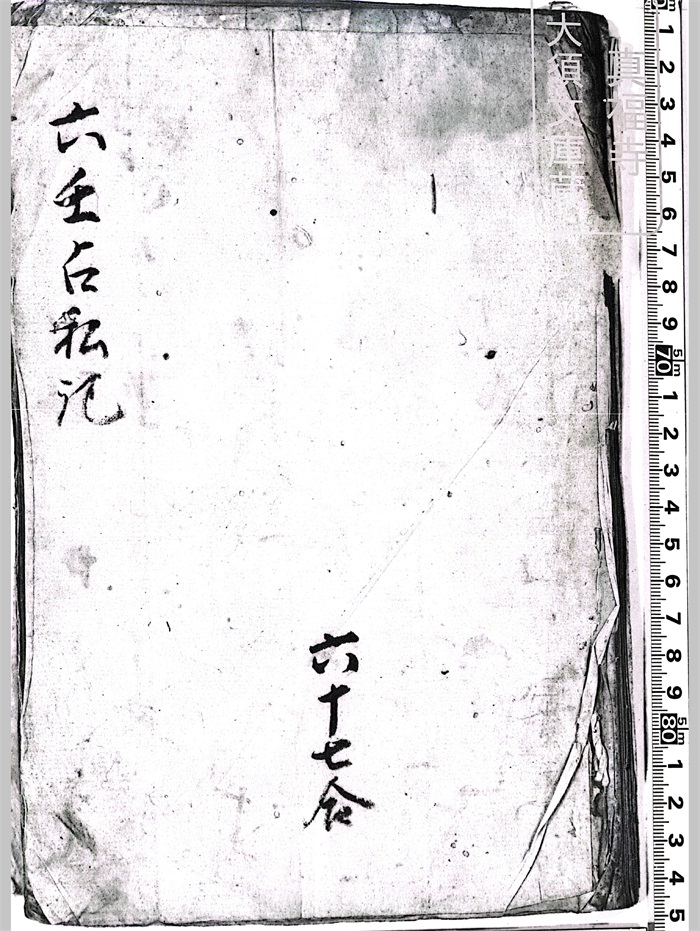 真福寺
大須文庫蔵
六壬占私記
六十七合
1 2 3 4 5 6 7 8 9 70 5m 1 2 3 4 5 6 7 8 9 80 5m 1 2 3 4 5